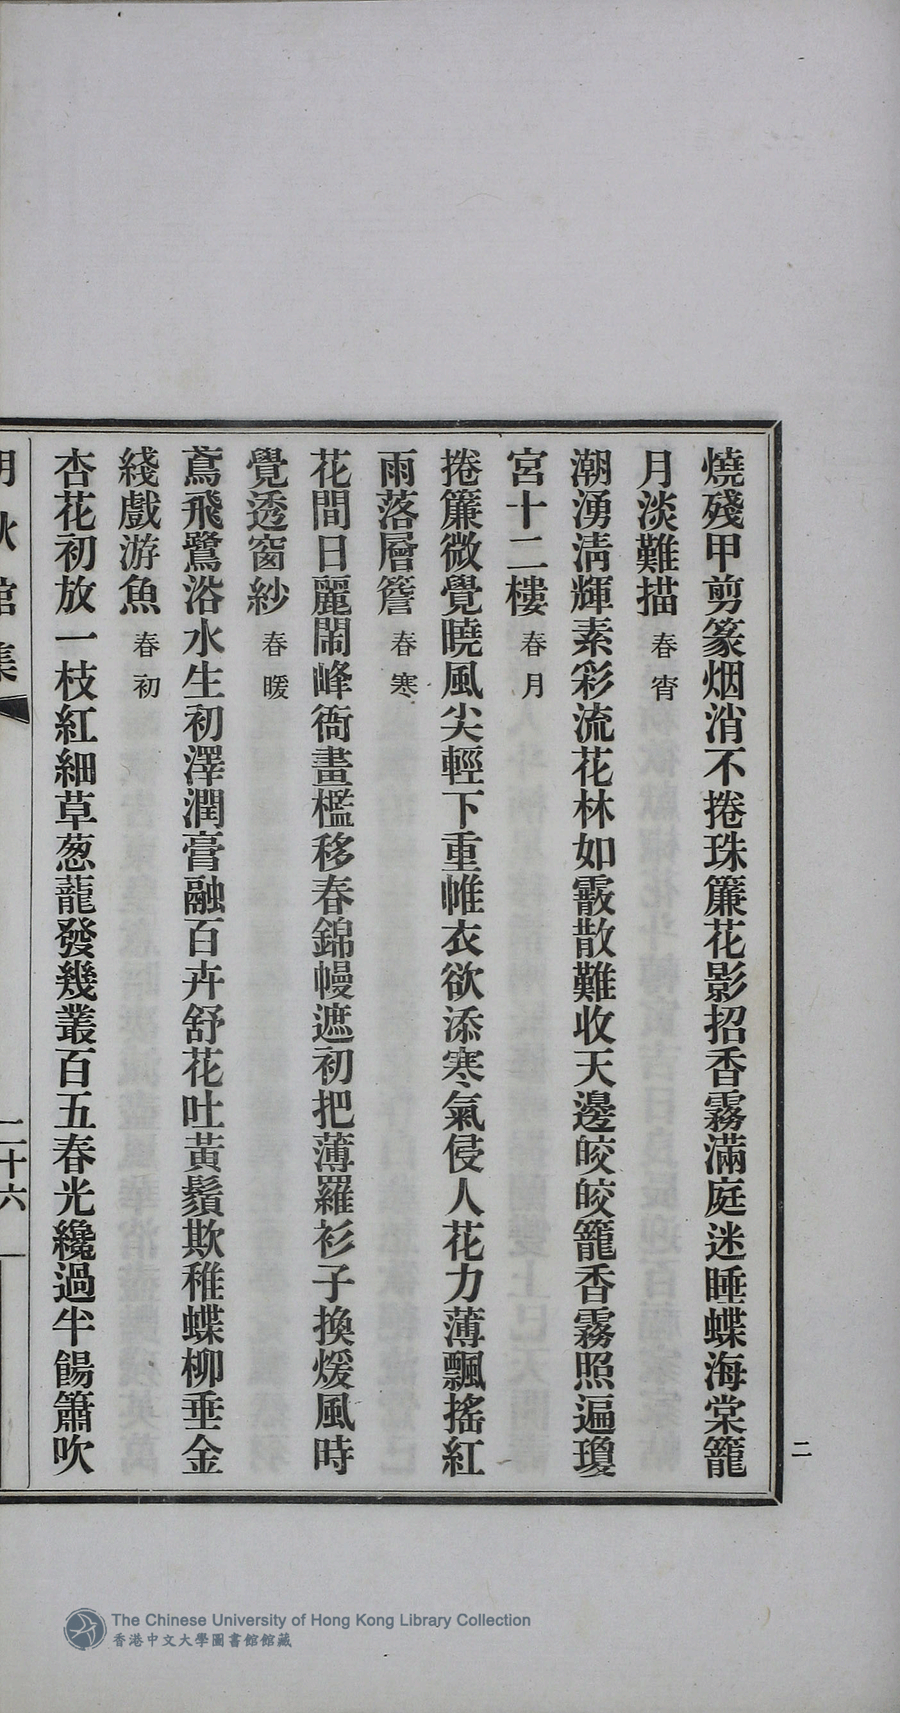 燒殘甲剪篆烟消不捲珠簾花影招香霧滿庭迷睡蝶海棠籠
月淡難描春宵
潮湧淸輝素彩流花林如霰散難收天邊皎皎籠香霧照遍瓊
宮十二樓春月
捲簾微覺曉風尖輕下重帷衣欲添寒氣侵人花力薄飄搖紅
雨落層簷春寒
花間日麗閙峰衙畫檻移春錦幔遮初把薄羅衫子換煖風時
覺透窗紗春暖
鳶飛鷺浴水生初澤潤膏融百卉舒花吐黃鬚欺稚蝶柳垂金
綫戲游魚春初
杏花初放一枝紅細草葱蘢發幾叢百五春光纔過半餳簫吹
秋館集
二十六
二
The Chinese University of Hong Kong Library Collection
香港中文大學圖書館館藏